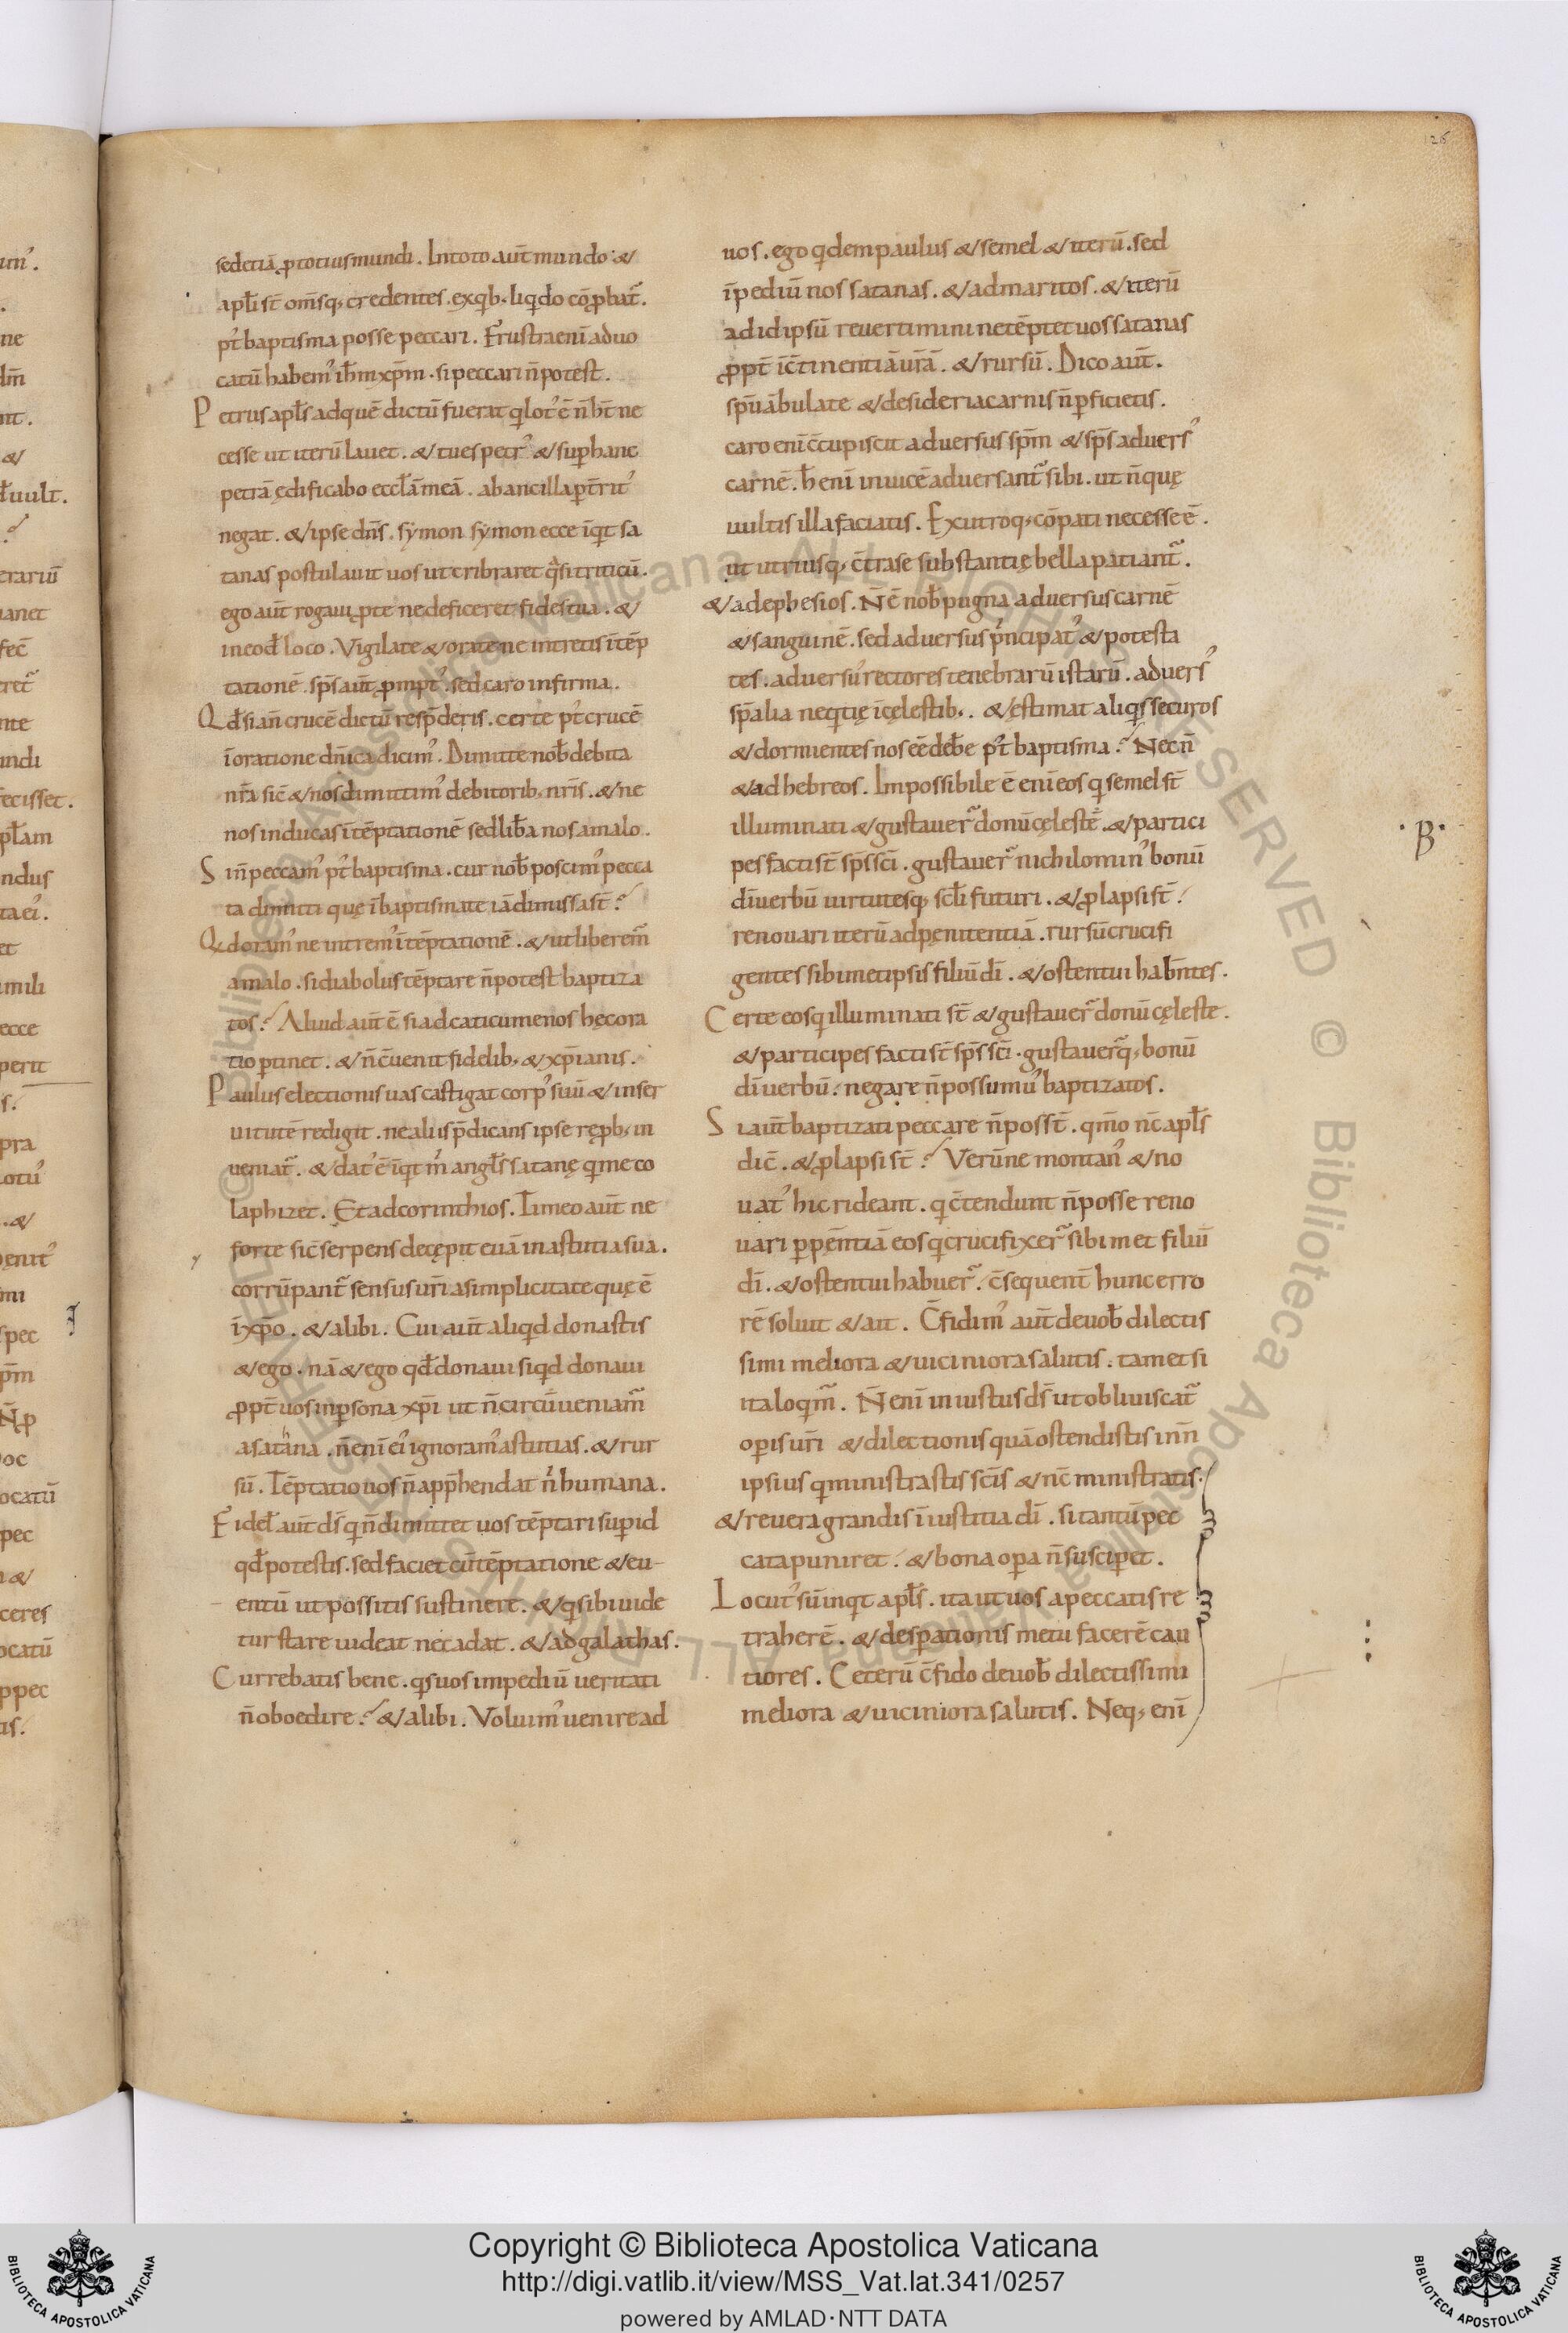 126
sedetiā ꝓtotiusmundi. Intoto aut̄ mundo &
apłi st̄ om̄sq; credentes. exqb; liqdo cōꝓbat᷑.
pt̓ baptisma posse peccari. Frustra eni᷑ aduo
catū habem᷒ ih̄m xp̄m. si peccari n̄ potest.
Petrus apłs adquē dictū fuerat q̇ lot᷒ ē n̄ ht̄ ne
cesse ut iterū lauet. & tu es petr᷒ & sup̱ hanc
petrā ędificabo eccłā meā. ab ancilla p̱t̄rit᷒
negat. & ipse dn̄s. symon symon ecce īqt sa
tanas postulauit uos ut cribraret q̄si triticū.
ego aut̄ rogaui ꝓ te ne deficeret fides tua. &
in eod̄ loco. Vigilate & orate ne intretis ītēp
tationē. sp̄s aut̄ ꝓmpt᷒. sed caro infirma.
Qd̄ si an̄ crucē dictū resp̄deris. certe pt̓ crucē
ī oratione dn̄ica dicim᷒. Dimitte nob̄ debita
nr̄a sic̄ & nos dimittim᷒ debitorib; nr̄is. & ne
nos inducas ītēptationē sed lib̄a nos a malo.
Si n̄ peccam᷒ pt̓ baptisma. cur nob̄ poscim᷒ pecca
ta dimitti quę ī baptismate iā dimissa st̄?
Qd oram᷒ ne intrem᷒ ītēptationē. & ut liberem᷑
a malo. si diabolus tēptare n̄ potest baptiza
tos? Aliud aut̄ ē si ad caticumenos hęc ora
tio p̱tinet. & n̄ c̄uenit fidelib; & xp̄ianis.
Paulus electionis uas castigat corp᷒ suū & in ser
uitutē redigit. ne aliis p̄dicans ipse ręp̱b; in
ueniat᷑. & dat᷒ ē īqt m̓ angłs satanę q̇ me co
laphizet. Et ad corinthios. Timeo aut̄ ne
forte sic̄ serpens decępit euā in astutia sua.
corrūpant᷑ sensus ur̄i a simplicitate quę ē
ī xp̄o. & alibi. Cui aut̄ aliqd donastis
& ego. nā & ego qd̄ donaui si qd donaui
ꝓpt̄ uos in p̱sona xp̄i ut n̄ circūueniam᷑
a satana. n̄ eni᷑ ei᷒ ignoram᷒ astutias. & rur
sū. Tēptatio uos n̄ app̄hendat n̓ humana.
Fidel̄ aut̄ ds̄ q̇ n̄ dimittet uos tēptari sup̱ id
qd̄ potestis. sed faciet cū tēptatione & eu-
entū ut possitis sustinere. & q̇ sibi uide
tur stare uideat ne cadat. & ad galathas.
Currebatis bene. q̇s uos impediū ueritati
n̄ oboedire? & alibi. Voluim᷒ uenire ad
uos. ego qdem paulus & semel & iterū. sed
īpediū nos satanas. & ad maritos. & iterū
ad id ipsū reuertimini ne tēptet uos satanas
ꝓpt̄ īc̄tinentiā ur̄ā. & rursū. Dico aut̄.
sp̄u ābulate & desideria carnis n̄ p̱ficietis.
caro eni᷑ c̄cupiscit aduersus sp̄m & sp̄s aduers᷒
carnē. h̄ eni᷑ inuicē aduersant᷑ sibi. ut n̄ quę
uultis illa faciatis. Ex utroq; cōpati necesse ē.
ut utriusq; c̄tra se substantię bella patiant᷑.
& ad ephesios. Nē nob̄ pugna aduersus carnē
& sanguinē. sed aduersus p̓ncipat᷒ & potesta
tes. aduersu᷒ rectores tenebrarū istarū. aduers᷒
sp̄alia neqtię ī cęlestib;. & ęstimat aliqs securos
& dormientes nos eē deb̄e pt̓ baptisma? Nec n̄
& ad hebreos. Impossibile ē eni᷑ eos q̇ semel st̄
illuminati & gustauer᷑ donū cęleste. & partici
pes facti st̄ sp̄s sc̄i. gustauer᷑ nichilomin᷒ bonū
dī uerbū uirtutesq; scłi futuri. & ꝓlapsi st̄
renouari iterū ad pęnitentiā. rursū crucifi
gentes sibimetipsis filiū dī. & ostentui hab̄ntes.
Certe eos q̇ illuminati st̄ & gustauer᷑ donū cęleste.
& participes facti st̄ sp̄s sc̄i. gustauer᷑q; bonū
dī uerbū. negare n̄ possumu᷒ baptizatos.
Si aut̄ baptizati peccare n̄ posst̄. qm̊o nc̄ apłs
dic̄. & ꝓlapsi st̄? Verū ne montan᷒ & no
uat᷒ hic rideant. q̇ c̄tendunt n̄ posse reno
uari p̱ pęn̄tiā eos q̇ crucifixer᷑ sibimet filiū
dī. & ostentui habuer᷑. c̄sequent̄ hunc erro
rē soluit & ait. C̄fidim᷒ aut̄ de uob̄ dilectis
simi meliora & uiciniora salutis. tametsi
ita loqm᷑. N̄ eni᷑ iniustus ds̄ ut obliuiscat᷑
op̱is ur̄i & dilectionis quā ostendistis in n̄n
ipsius q̇ ministrastis sc̄is & nc̄ ministratis.
& reuera grandis ī iustitia dī. si tantū pec
cata puniret. & bona op̱a n̄ suscip̱et.
Locut᷒ sū inqt apłs. ita ut uos a peccatis re
traherē. & desp̱ationis metu facerē cau
tiores. Ceterū c̄fido de uob̄ dilectissimi
meliora & uiciniora salutis. Neq; eni᷑
·B·
Copyright © Biblioteca Apostolica Vaticana
http://digi.vatlib.it/view/MSS_Vat.lat.341/0257
powered by AMLAD·NTT DATA
BIBLIOTECA APOSTOLICA VATICANA
BIBLIOTECA APOSTOLICA VATICANA